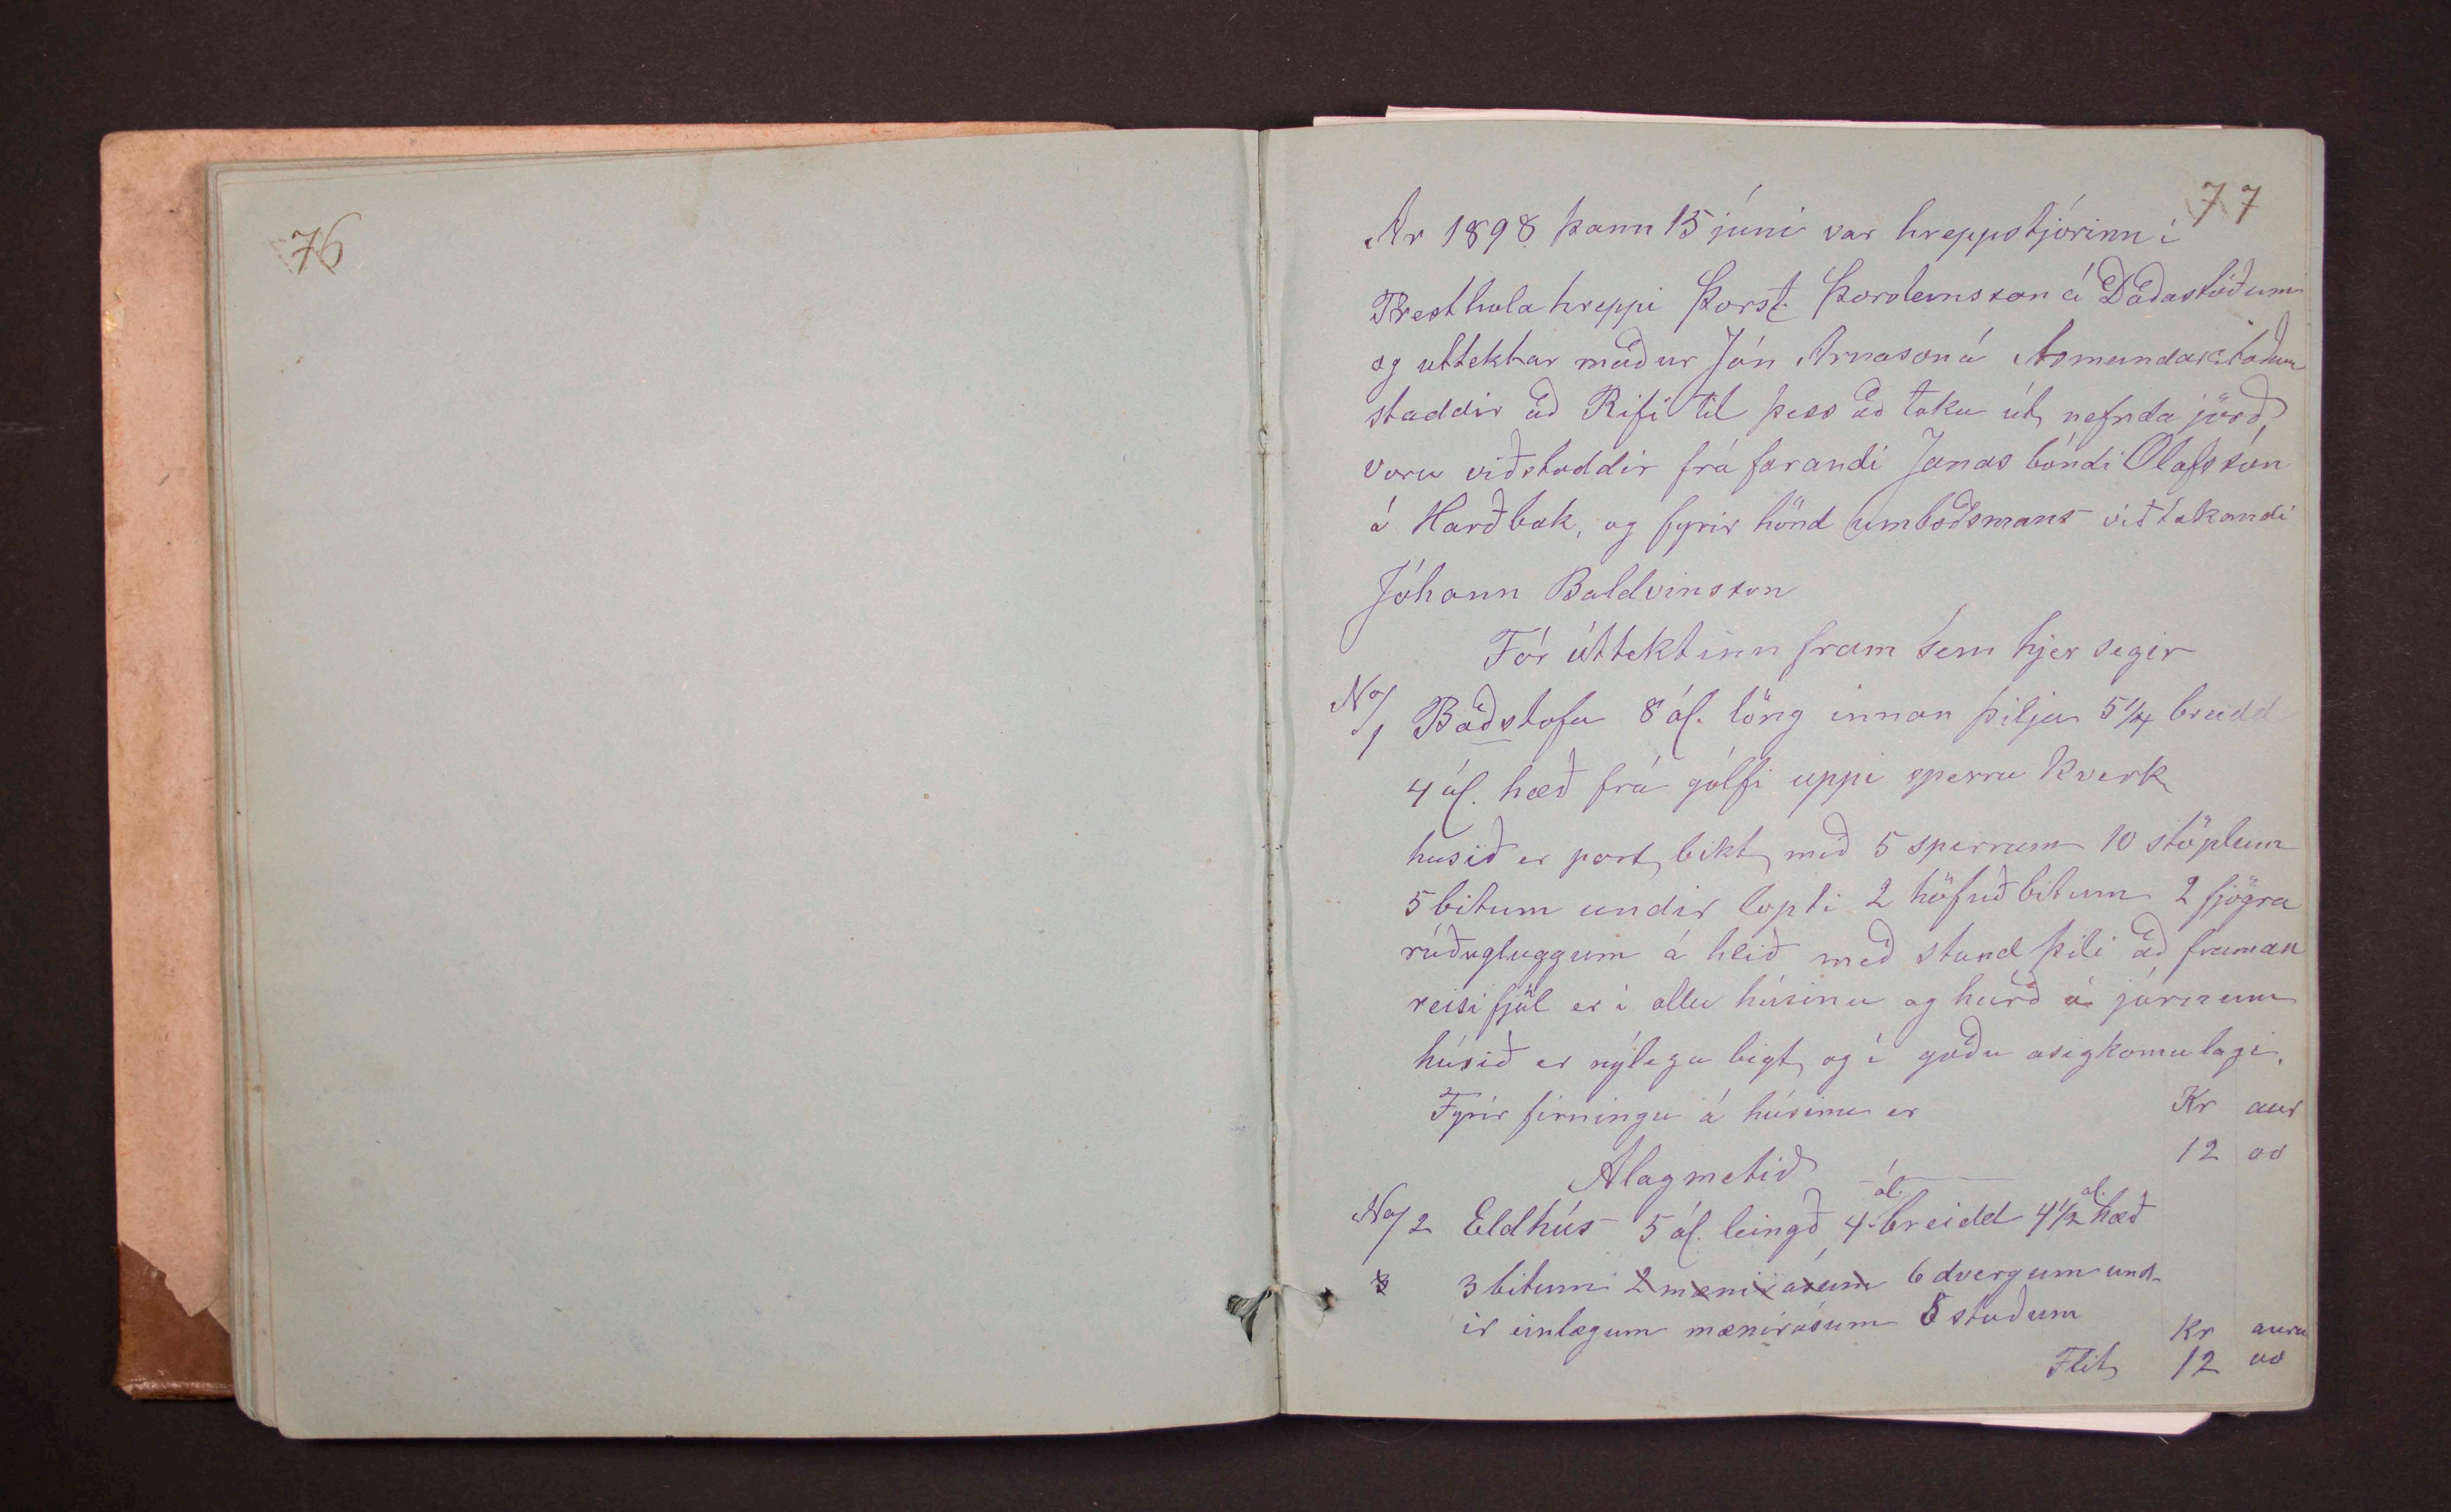 76
77
Ár 1898 þann 15 júní var hreppstjórinn í
Presthola hreppi Þorst. Þorsteinsson á Daðastöðum
og uttektar maður Jón Arnason á Asmundarstöðum
staddir að Rifi til þess að taka út nefnda jörð,
voru viðstaddir frá farandi Jonas bóndi Olafsson
á Harðbak, og fyrir hönd umboðsmans viðtakandi
Jóhann Baldvinsson
Fór úttektinn fram sem hjer segir
No/1 Baðstofa 8 ál. löng innan þilja 5 1/4 breidd
4 ál. hæð frá gólfi uppi sperru kverk
husið er port bikt með 5 sperrum 10 stöplum
5 bitum undir lopti 2 höfuð bitum 2 fjögra
rúðugluggum á hlið með stand þili að framan
reisi fjöl er í öllu húsinu og hurð á járnum
húsið er nýlega bigt og í goðu asigkomulagi.
Fyrir firningu á húsinu er Kr aur
12 00
Alagmetið
No/2 Eldhús 5 ál. leingð 4 ál. breidd 4 1/2 al. hæð
3 3 bitum 2 mæni asum 6 dvergum und-
ir einlægum mænirásum 5 stoðum
Kr aura
Flit 12 00